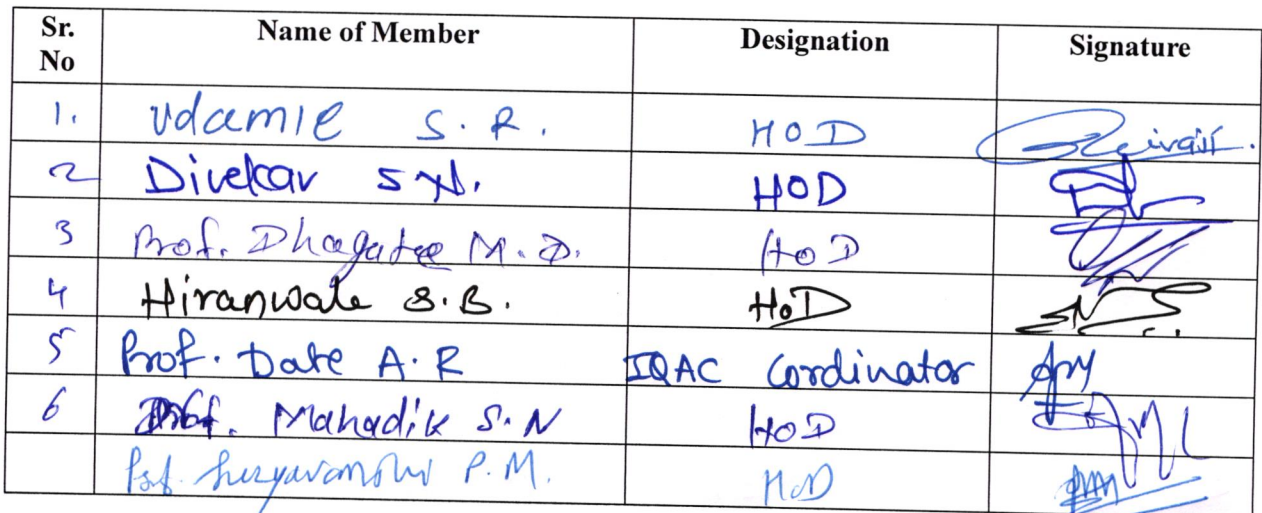 Sr. No Name of Member Designation Signature
1. Udamle S. R. HOD
2 Divekar S.N. HOD
3 Prof. Dhagate M. D. HoD
4 Hiranwale S. B. HoD
5 Prof. Date A. R IQAC Cordinator
6 Prof. Mahadik S. N HoD
Prof. Suryavanshi P. M. HoD